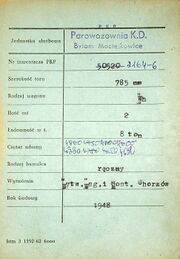 P K P
Jednostka służbowa Parowozownia K.D.
Bytom Maciejkowice
Nr inwentarza PKP 50520 3164-6
Szerokość toru 785 mm
Rodzaj wagonu Wh
Ilość osi 2
Ładowność w t. 8 ton
Ciężar własny
Rodzaj hamulca ręczny
Wytwórnia Wytw. Wag. i Most. Chorzów
Rok budowy 1948